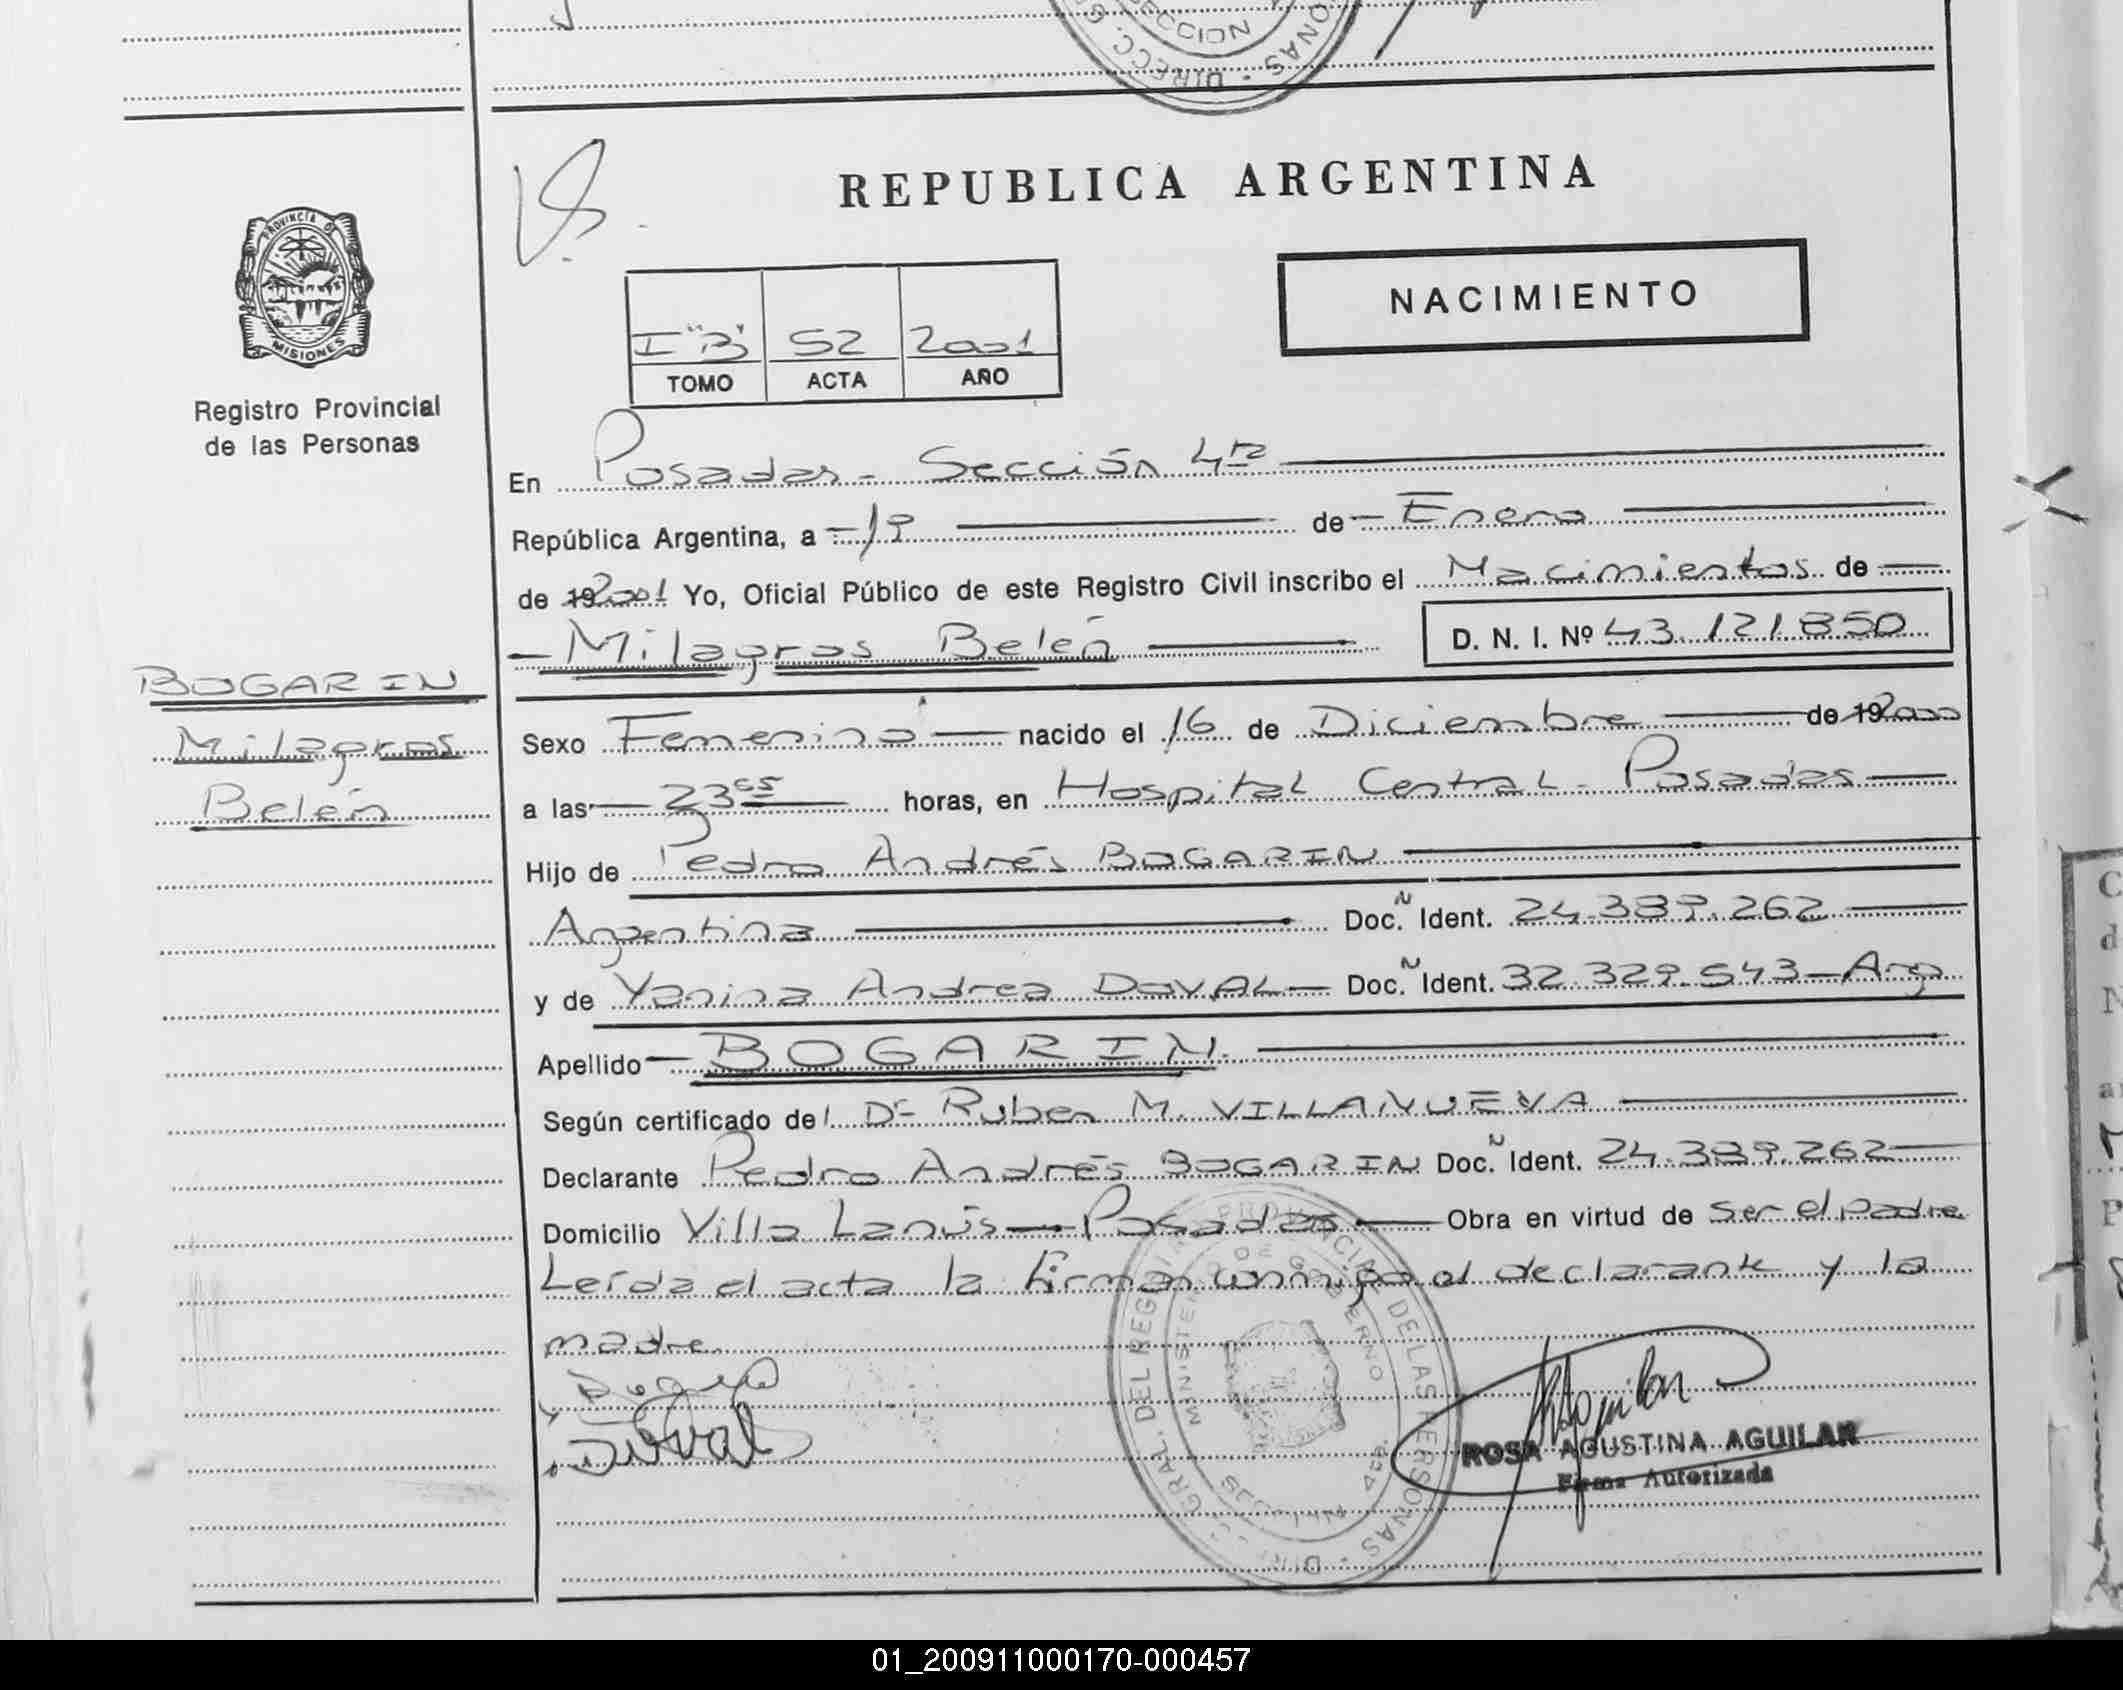 DIRECC. G
ECCION
ONAS
PROVINCIA DE
MISIONES
Registro Provincial
de las Personas
REPUBLICA ARGENTINA
NACIMIENTO
I "B" 52 2001
TOMO ACTA AÑO
En Posadas - Sección 4ta
República Argentina, a - 19 de - Enero
de 19 2001 Yo, Oficial Público de este Registro Civil inscribo el Nacimientos de
- Milagros Belén D. N. I. Nº 43.121.850
BOGARIN
Milagros
Belén
Sexo Femenino nacido el 16 de Diciembre de 19 2000
a las 23 05 horas, en Hospital Central - Posadas
Hijo de Pedro Andrés BOGARIN
Argentina Doc. N Ident. 24.389.262
y de Yanina Andrea DOVAL Doc. N Ident. 32.329.543 - Arg
Apellido BOGARIN
Según certificado del Dr Ruben M. VILLANUEVA
Declarante Pedro Andrés BOGARIN Doc. N Ident. 24.389.262
Domicilio Villa Lanús - Posadas Obra en virtud de ser el padre
Leída el acta la firman conmigo el declarante y la
madre.
Doval
DIRECC. GRAL. DEL REGISTRO PROVINCIAL DE LAS PERSONAS
MINISTERIO DE GOBIERNO
MISIONES
ROSA AGUSTINA AGUILAR
Firma Autorizada
01_200911000170-000457